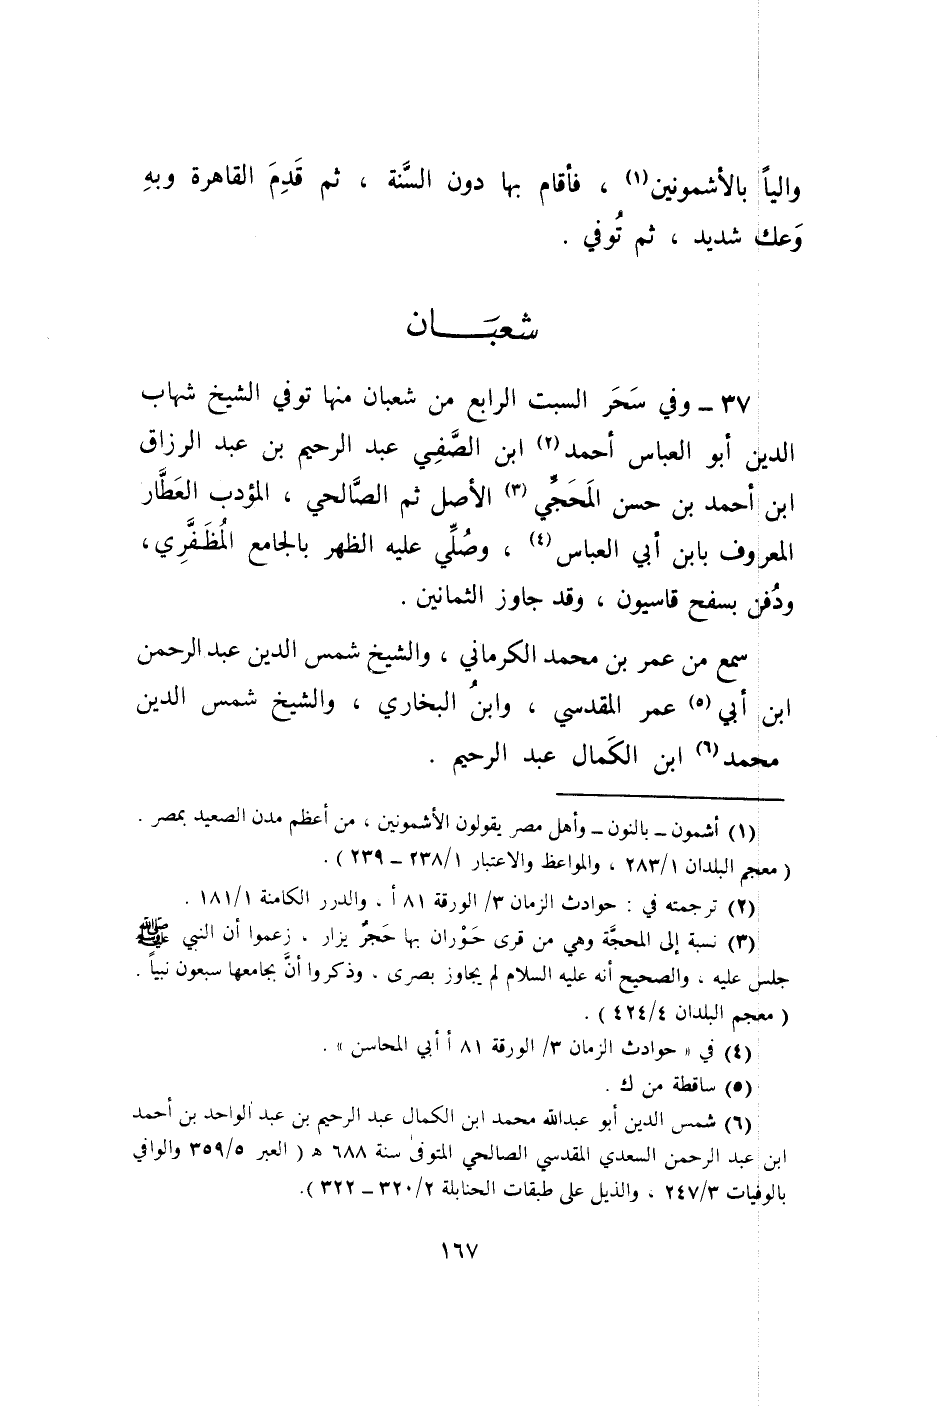 والياً بالأشمونين(١) ، فأقام بها دون السَّنة ، ثم قَدِمَ القاهرة وبهِ
وَعك شديد ، ثم تُوفي .
شعبَـــان
٣٧ ــ وفي سَحَر السبت الرابع من شعبان منها توفي الشيخ شهاب
الدين أبو العباس أحمد(٢) ابن الصَّفي عبد الرحيم بن عبد الرزاق
ابن أحمد بن حسن المَحَجِّي(٣) الأصل ثم الصَّالحي ، المؤدب العَطَّار
المعروف بابن أبي العباس(٤) ، وصُلِّي عليه الظهر بالجامع المُظَفَّري،
ودُفن بسفح قاسيون ، وقد جاوز الثمانين .
سمع من عمر بن محمد الكرماني ، والشيخ شمس الدين عبد الرحمن
ابن أبي(٥) عمر المقدسي ، وابنُ البخاري ، والشيخ شمس الدين
محمد(٦) ابن الكَمال عبد الرحيم .
(١) أشمون ــ بالنون ــ وأهل مصر يقولون الأشمونين ، من أعظم مدن الصعيد بمصر .
( معجم البلدان ٢٨٣/١ ، والمواعظ والاعتبار ٢٣٨/١ ــ ٢٣٩ ) .
(٢) ترجمته في : حوادث الزمان ٣/ الورقة ٨١ أ ، والدرر الكامنة ١٨١/١ .
(٣) نسبة إلى المحجَّة وهي من قرى حَوْران بها حَجرٌ يزار ، زعموا أن النبي ﷺ
جلس عليه ، والصحيح أنه عليه السلام لم يجاوز بصرى ، وذكروا أنَّ بجامعها سبعون نبياً .
( معجم البلدان ٤٢٤/٤ ) .
(٤) في « حوادث الزمان ٣/ الورقة ٨١ أ أبي المحاسن » .
(٥) ساقطة من ك .
(٦) شمس الدين أبو عبدالله محمد ابن الكمال عبد الرحيم بن عبد الواحد بن أحمد
ابن عبد الرحمن السعدي المقدسي الصالحي المتوفى سنة ٦٨٨ ه ( العبر ٣٥٩/٥ والوافي
بالوفيات ٢٤٧/٣ ، والذيل على طبقات الحنابلة ٣٢٠/٢ ــ ٣٢٢ ).
١٦٧